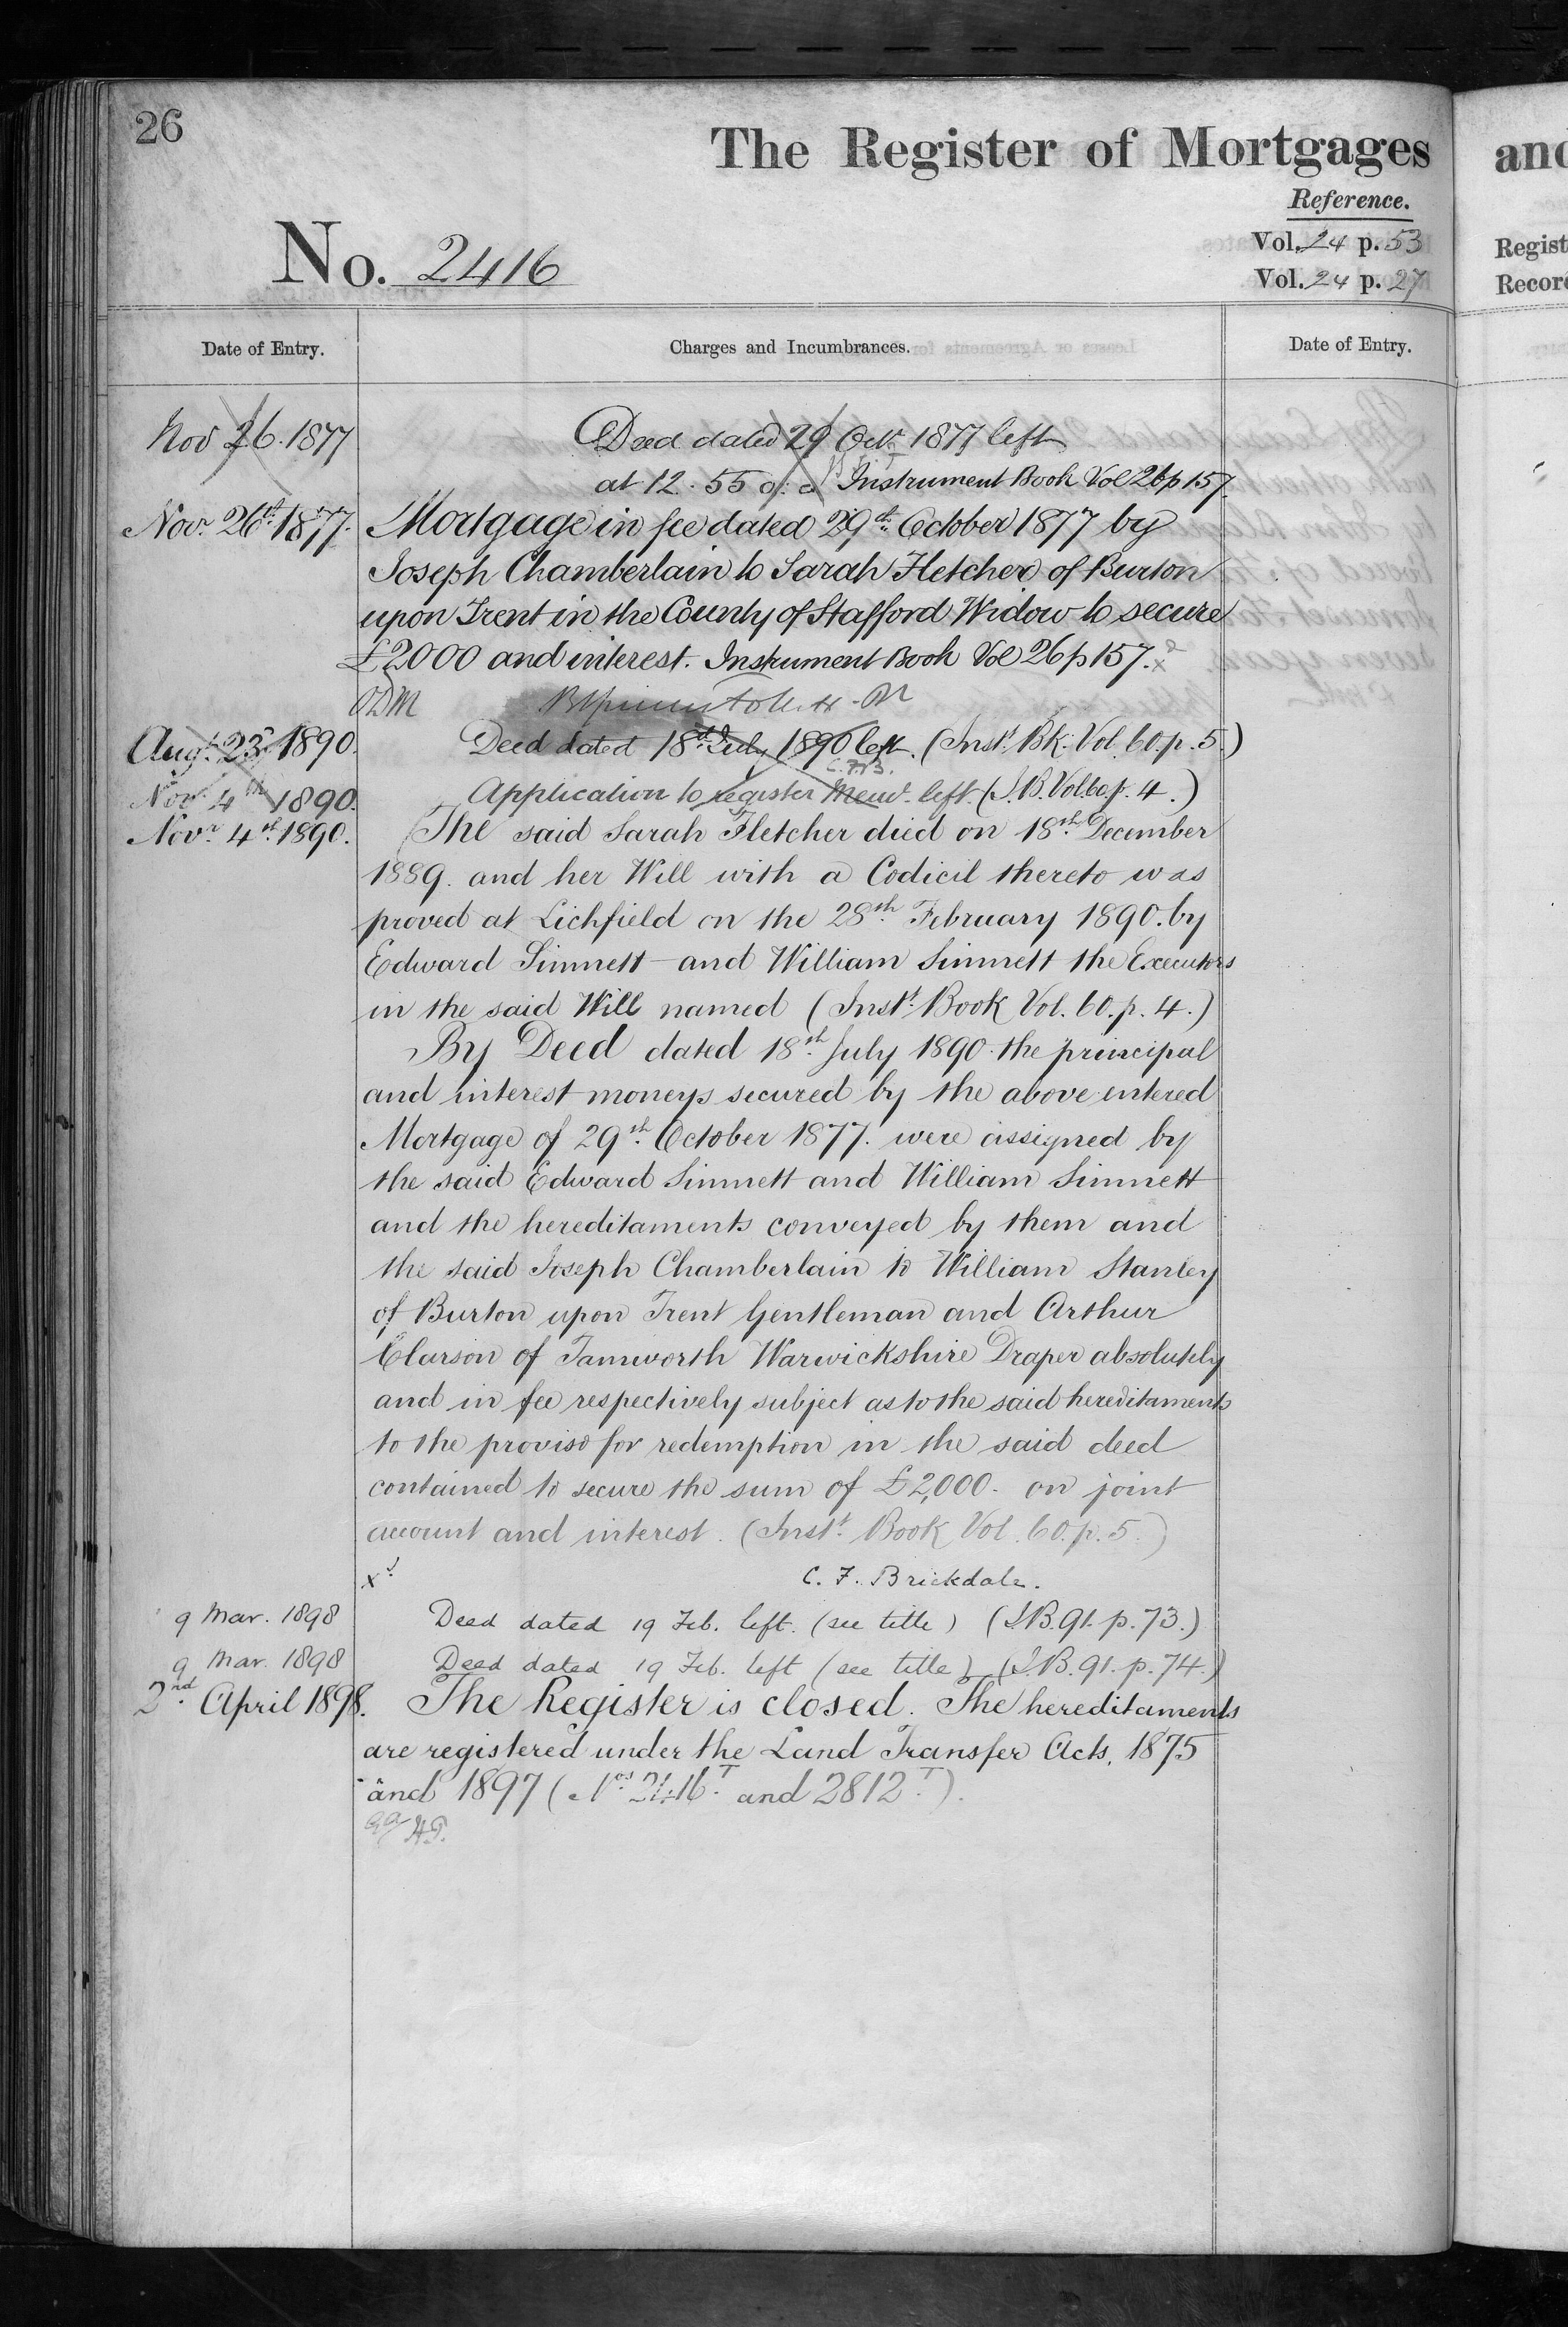 26
The Register of Mortgages
and
Reference.
No. 2416
Vol. 24 p. 53
Vol. 24 p. 27
Regist
Record
Date of Entry.
Charges and Incumbrances.
Date of Entry.
Nov 26. 1877
Deed dated 29 Oct. 1877 left
at 12.55 Instrument Book Vol 26 p 157.
Novr. 26th. 1877.
Mortgage in fee dated 29th. October 1877 by
Joseph Chamberlain to Sarah Fletcher of Burton
upon Trent in the County of Stafford Widow to secure
£2000 and interest. Instrument Book Vol 26 p 157.
Augt. 23. 1890.
Deed dated 18th July 1890 left. (Inst. Bk. Vol. 60. p. 5.)
C.F.B.
Nov. 4th 1890.
Application to register left. (I.B. Vol. 60. p. 4.)
Novr. 4th. 1890.
The said Sarah Fletcher died on 18th. December
1889. and her Will with a Codicil thereto was
proved at Lichfield on the 28th. February 1890. by
Edward Simnett and William Simnett the Executors
in the said Will named (Instt. Book Vol. 60. p. 4.)
By Deed dated 18th. July 1890. the principal
and interest moneys secured by the above entered
Mortgage of 29th. October 1877. were assigned by
the said Edward Simnett and William Simnett
and the hereditaments conveyed by them and
the said Joseph Chamberlain to William Stanley
of Burton upon Trent Gentleman and Arthur
Clarson of Tamworth Warwickshire Draper absolutely
and in fee respectively subject as to the said hereditaments
to the proviso for redemption in the said deed
contained to secure the sum of £2,000. on joint
account and interest. (Instt. Book Vol. 60. p. 5.)
C. F. Brickdale.
9 Mar. 1898
Deed dated 19 Feb. left. (see title) (I.B. 91. p. 73.)
9 Mar. 1898
Deed dated 19 Feb. left (see title) (I.B. 91. p. 74.)
2nd. April 1898.
The Register is closed. The hereditaments
are registered under the Land Transfer Acts, 1875
and 1897 (Nos. 2416T. and 2812T.).